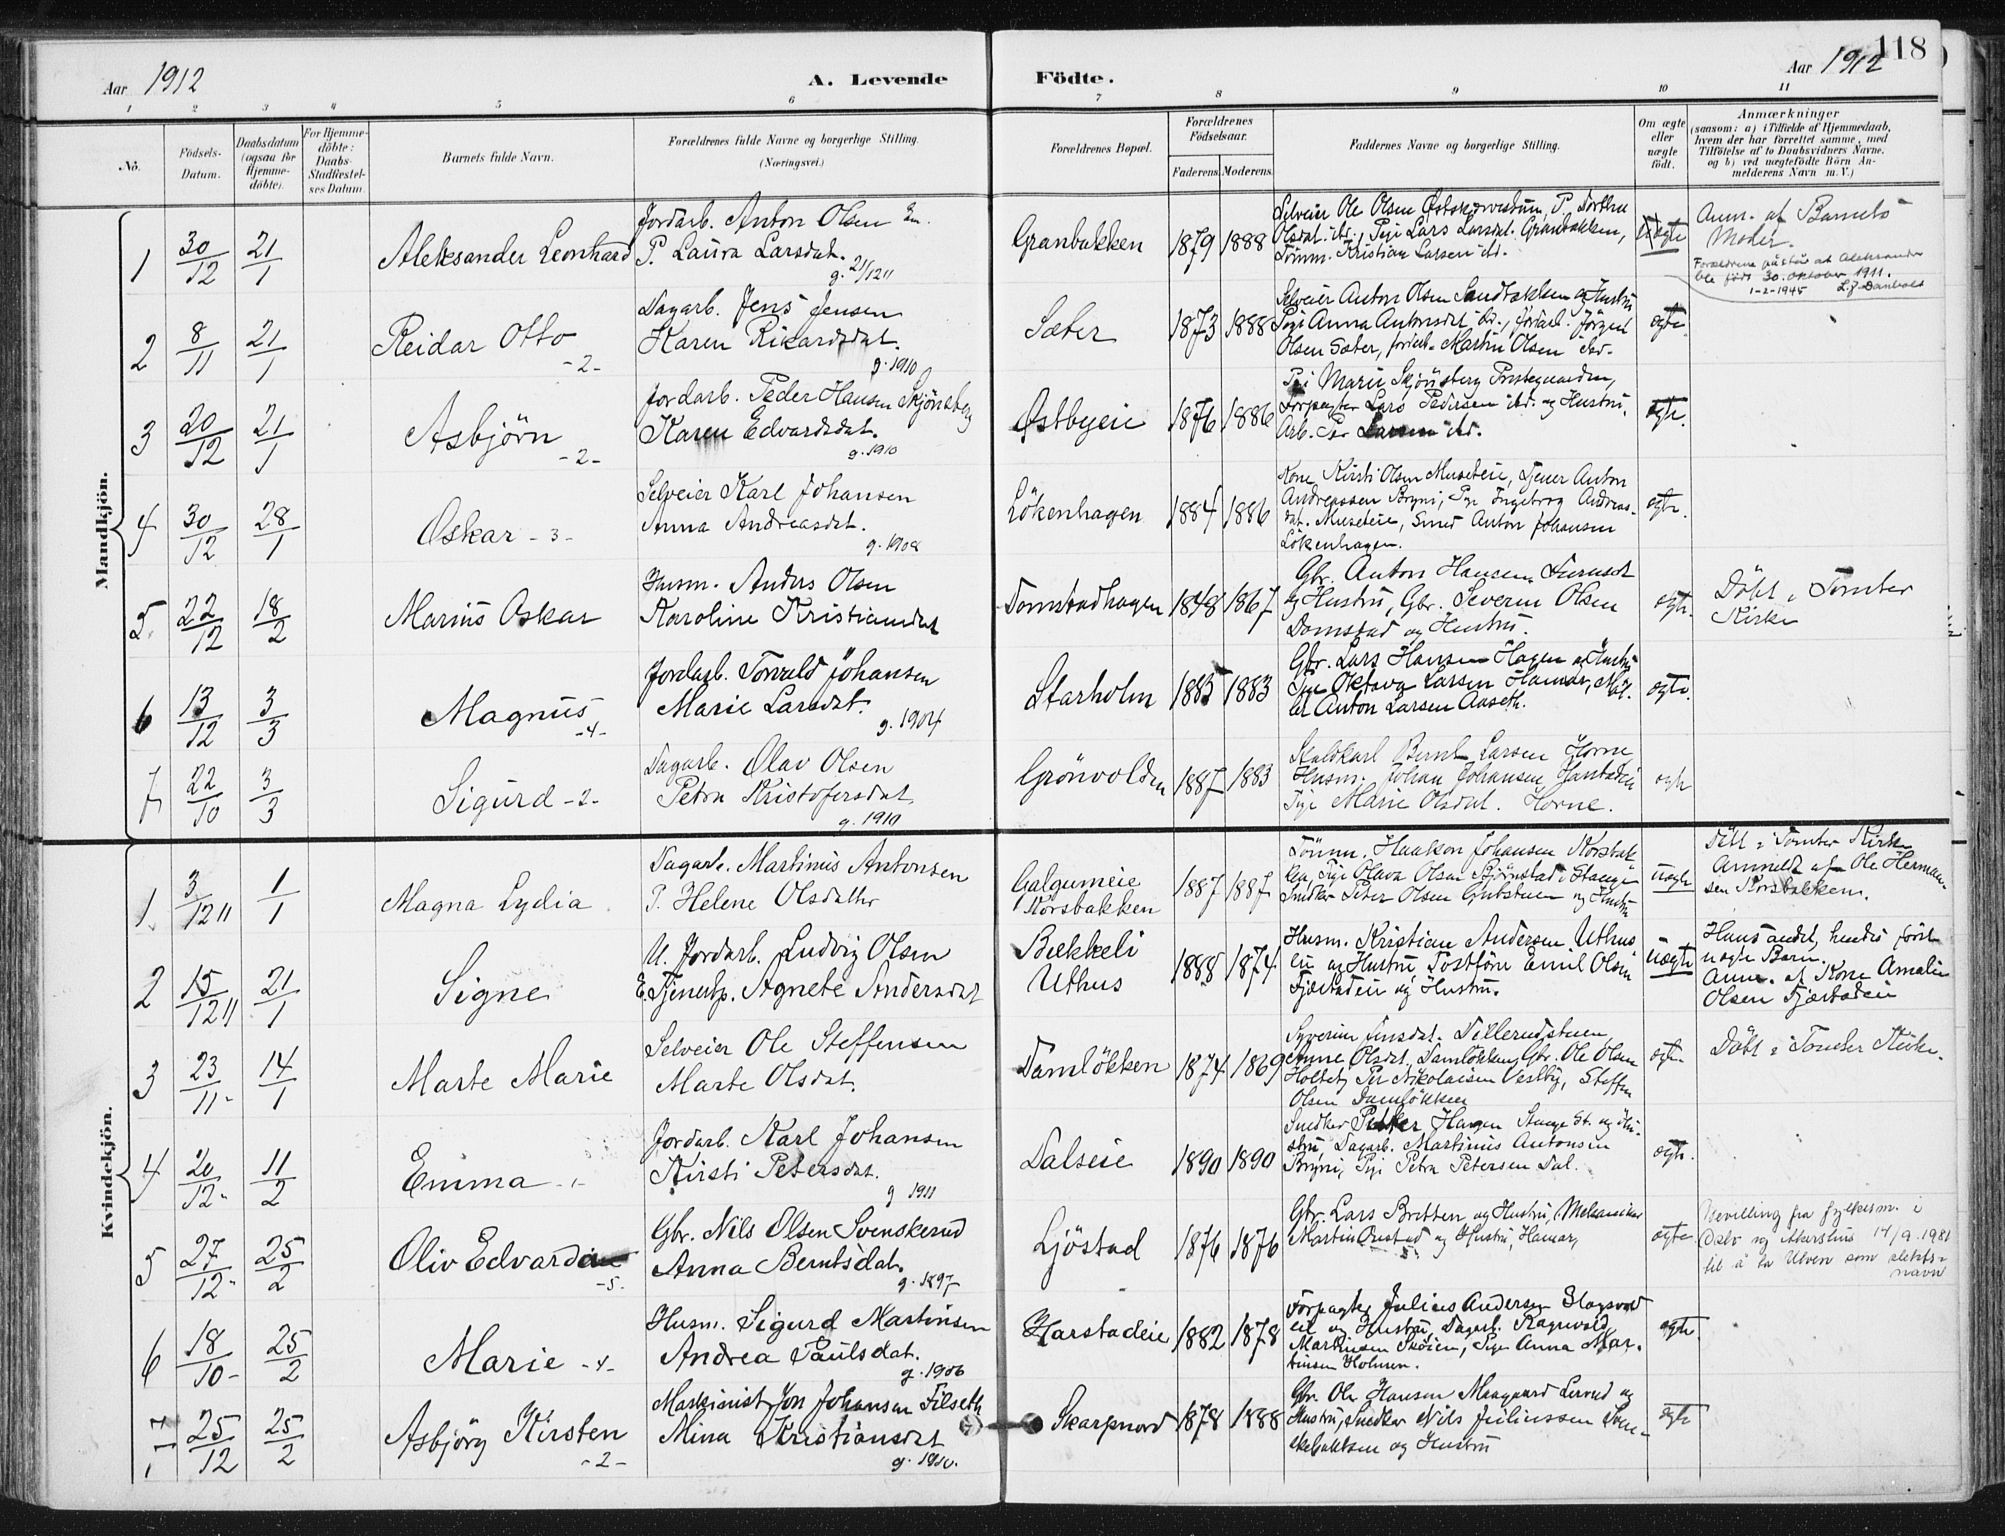 118
Aar 1912
A. Levende
Födte.
Aar 1912
1 2 3 4 5 6 7 8 9 10 11
Nö.
Födsels-Datum.
Daabsdatum (ogsaa for Hjemmedöbte).
For Hjemmedöbte: Daabs-Stadfæstelses Datum.
Barnets fulde Navn.
Forældrenes fulde Navne og borgerlige Stilling. (Næringsvei.)
Forældrenes Bopæl.
Forældrenes Födselsaar.
Faderens. Moderens.
Faddernes Navne og borgerlige Stilling.
Om ægte eller uægte födt.
Anmærkninger
(saasom: a) i Tilfælde af Hjemmedaab,
hvem der har forrettet samme, med
Tilföielse af to Daabsvidners Navne.
og b) ved uægtefödte Börn Anmelderens Navn m. V.)
Mandkjön.
1 30/12 21/1 Aleksander Leonhard
Jordarb. Anton Olsen Em.
P. Laura Larsdat. g. 21/12 11
Granbakken 1879 1888
Selveier Ole Olsen
Olsdat. ibd., Pige Lars Larsdat. Granbakken,
Tömm. Kristian Larsen ibd.
Uægte
Anm. af Barnets
Moder.
Forældrene påstår at Aleksander
ble født 30. oktober 1911.
1-2-1945
2 8/11 21/1 Reidar Otto -2-
Dagarb. Jens Jensen
Karen Rikardsdat. g. 1910
Sæter 1873 1888
Selveier Anton Olsen Sandbakken og Hustru
Pige Anna Antonsdat ibd., Jordarb. Jörgen
Olsen Sæter, Jordarb. Martin Olsen ibd.
ægte.
3 20/12 21/1 Asbjörn -2-
Jordarb. Peder Hansen Skjönsberg
Karen Edvardsdat. g. 1910
Østbyeie 1876 1886
Pige Marie Skjönsberg Prestegaarden,
Forpagter Lars Pedersen ibd. og Hustru,
Arb. Per Larsen ibd.
ægte.
4 30/12 28/1 Oskar -3-
Selveier Karl Johansen
Anna Andreasdat. g. 1908
Lökenhagen 1884 1886
Kone Kirsti Olsen Museteie, Tjener Anton
Andreassen Bryni, Pige Ingeborg Andreas-
dat. Museteie, Smed Anton Johansen
Lökenhagen.
ægte.
5. 22/12 18/2 Marius Oskar
Husm. Anders Olsen
Karoline Kristiansdat
Domstadhagen 1848 1867
Gbr. Anton Hansen Furuset
og Hustru, Gbr. Severin Olsen
Domstad og Hustru.
ægte.
Döbt i Tomter
Kirke
6 13/12 3/3 Magnus -4-
Jordarb. Torvald Johansen
Marie Larsdat. g. 1904
Starholm 1885 1883
Gbr. Lars Hansen Hagen og Hustru
Pige Oktava Larsen Hamar, Mal-
er Anton Larsen Aaseth.
ægte.
7 22/10 3/3 Sigurd -2-
Dagarb. Olav Olsen
Petra Kristofersdat. g. 1910
Grönvolden 1887 1883
Staldkarl Bernt Larsen Horne
Husm. Johan Johansen
Pige Marie Olsdat. Horne.
ægte
Kvindekjön.
1. 3/12 11 1/1 Magna Lydia
Dagarb. Martinus Antonsen
P. Helene Olsdatter
Galgumeie
Korsbakken 1887 1887
Tömm. Haakon Johansen Korsbak-
ken, Pige Olava Olsen i Stange
Snedker Peter Olsen og Hustru
uægte
Döbt i Tomter Kirke
Anmeldt af Ole Herman-
sen Korsbakken.
2 15/12 11 21/1 Signe
U. Jordarb. Ludvig Olsen
E. Tjenestp. Agnete Andersdat
Bækkeli
Uthus 1888 1874
Husm. Kristian Andersen Uthus
eie og Hustru, Postföre Emil Olsen
Fjæstadeie og Hustru.
uægte
Hans andet, hendes först
uægte Barn.
Anm. af Kone Amalie
Olsen Fjæstadeie
3 23/11- 14/1 Marte Marie
Selveier Ole Steffensen
Marte Olsdat.
Damlökken 1874 1869
Syverine Dillerudstuen,
Anne Olsdat. Damlökken, Gbr. Ole Olsen
Holtet, Per Nikolaisen Vestby, Steffen
Olsen Damlökken
ægte
Döbt i Tomter Kirke.
4 20/12- 11/2 Emma -1-
Jordarb. Karl Johansen
Kirsti Petersdat. g 1911
Dalseie 1890 1890
Snedker Petter Hansen Stange St. og Hu-
stru, Dagarb. Martinus Antonsen
Bryni, Pige Petra Petersen Dal.
ægte.
5 27/12- 25/2 Oliv Edvarda -5-
Gbr. Nils Olsen Svenskerud
Anna Berntsdat. g. 1897
Ljöstad 1876 1876
Gbr. Lars Britten og Hustru, Mekaniker
Martin Onstad og Hustru, Hamar,
ægte
Bevilling fra fylkesm. i
Oslo og Akershus 14/9.1981
til å ta Ulven som slekts-
navn
6 18/10- 25/2 Marie -4-
Husm. Sigurd Martinsen
Andrea Paulsdat. g. 1906
Harstadeie 1882 1878
Forpagter Julius Andersen Slagsvold
eie og Hustru, Dagarb. Ragnvald
Martinsen Skoien, Pige Anna Mar-
tinsen Holmen.
ægte.
7 25/12 25/2 Asbjörg Kirsten -2-
Maskinist Jon Johansen Filseth
Mina Kristiansdat g. 1910.
Skarpnord 1878 1888
Gbr. Ole Hansen Maagaard Lerud og
Hustru, Snedker Nils Juliussen Sven-
skebakken og Hustru
ægte